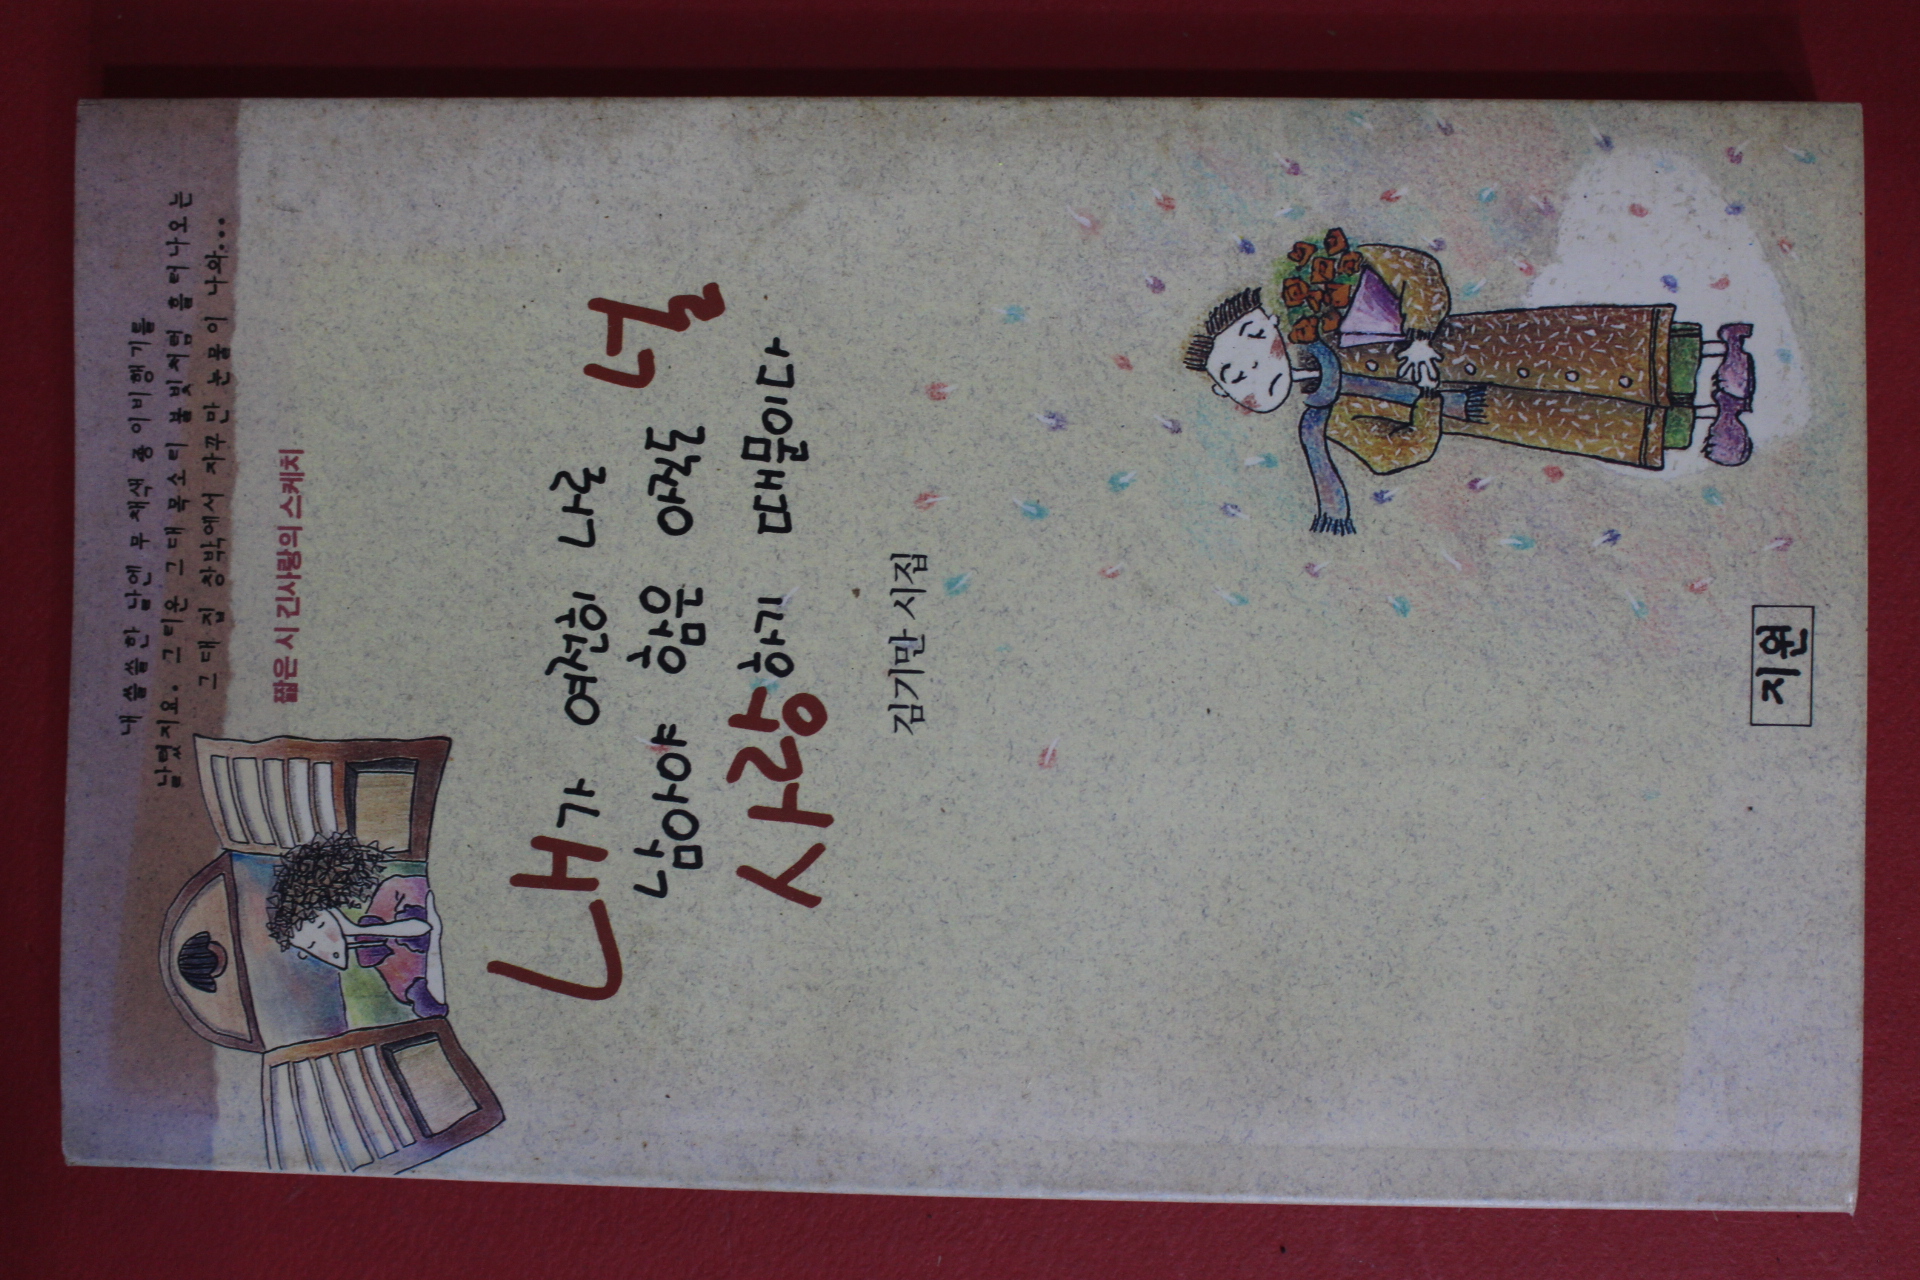 내 쓸쓸한 날엔 무채색 종이비행기를
날렸지요. 그리운 그대 목소리 불빛처럼 흘러나오는
그대 집 창밖에서 자꾸만 눈물이 나와...
짧은 시 긴사랑의 스케치
내가 여전히 나로
남아야 함은 아직도 널
사랑하기 때문이다
김기만 시집
지원